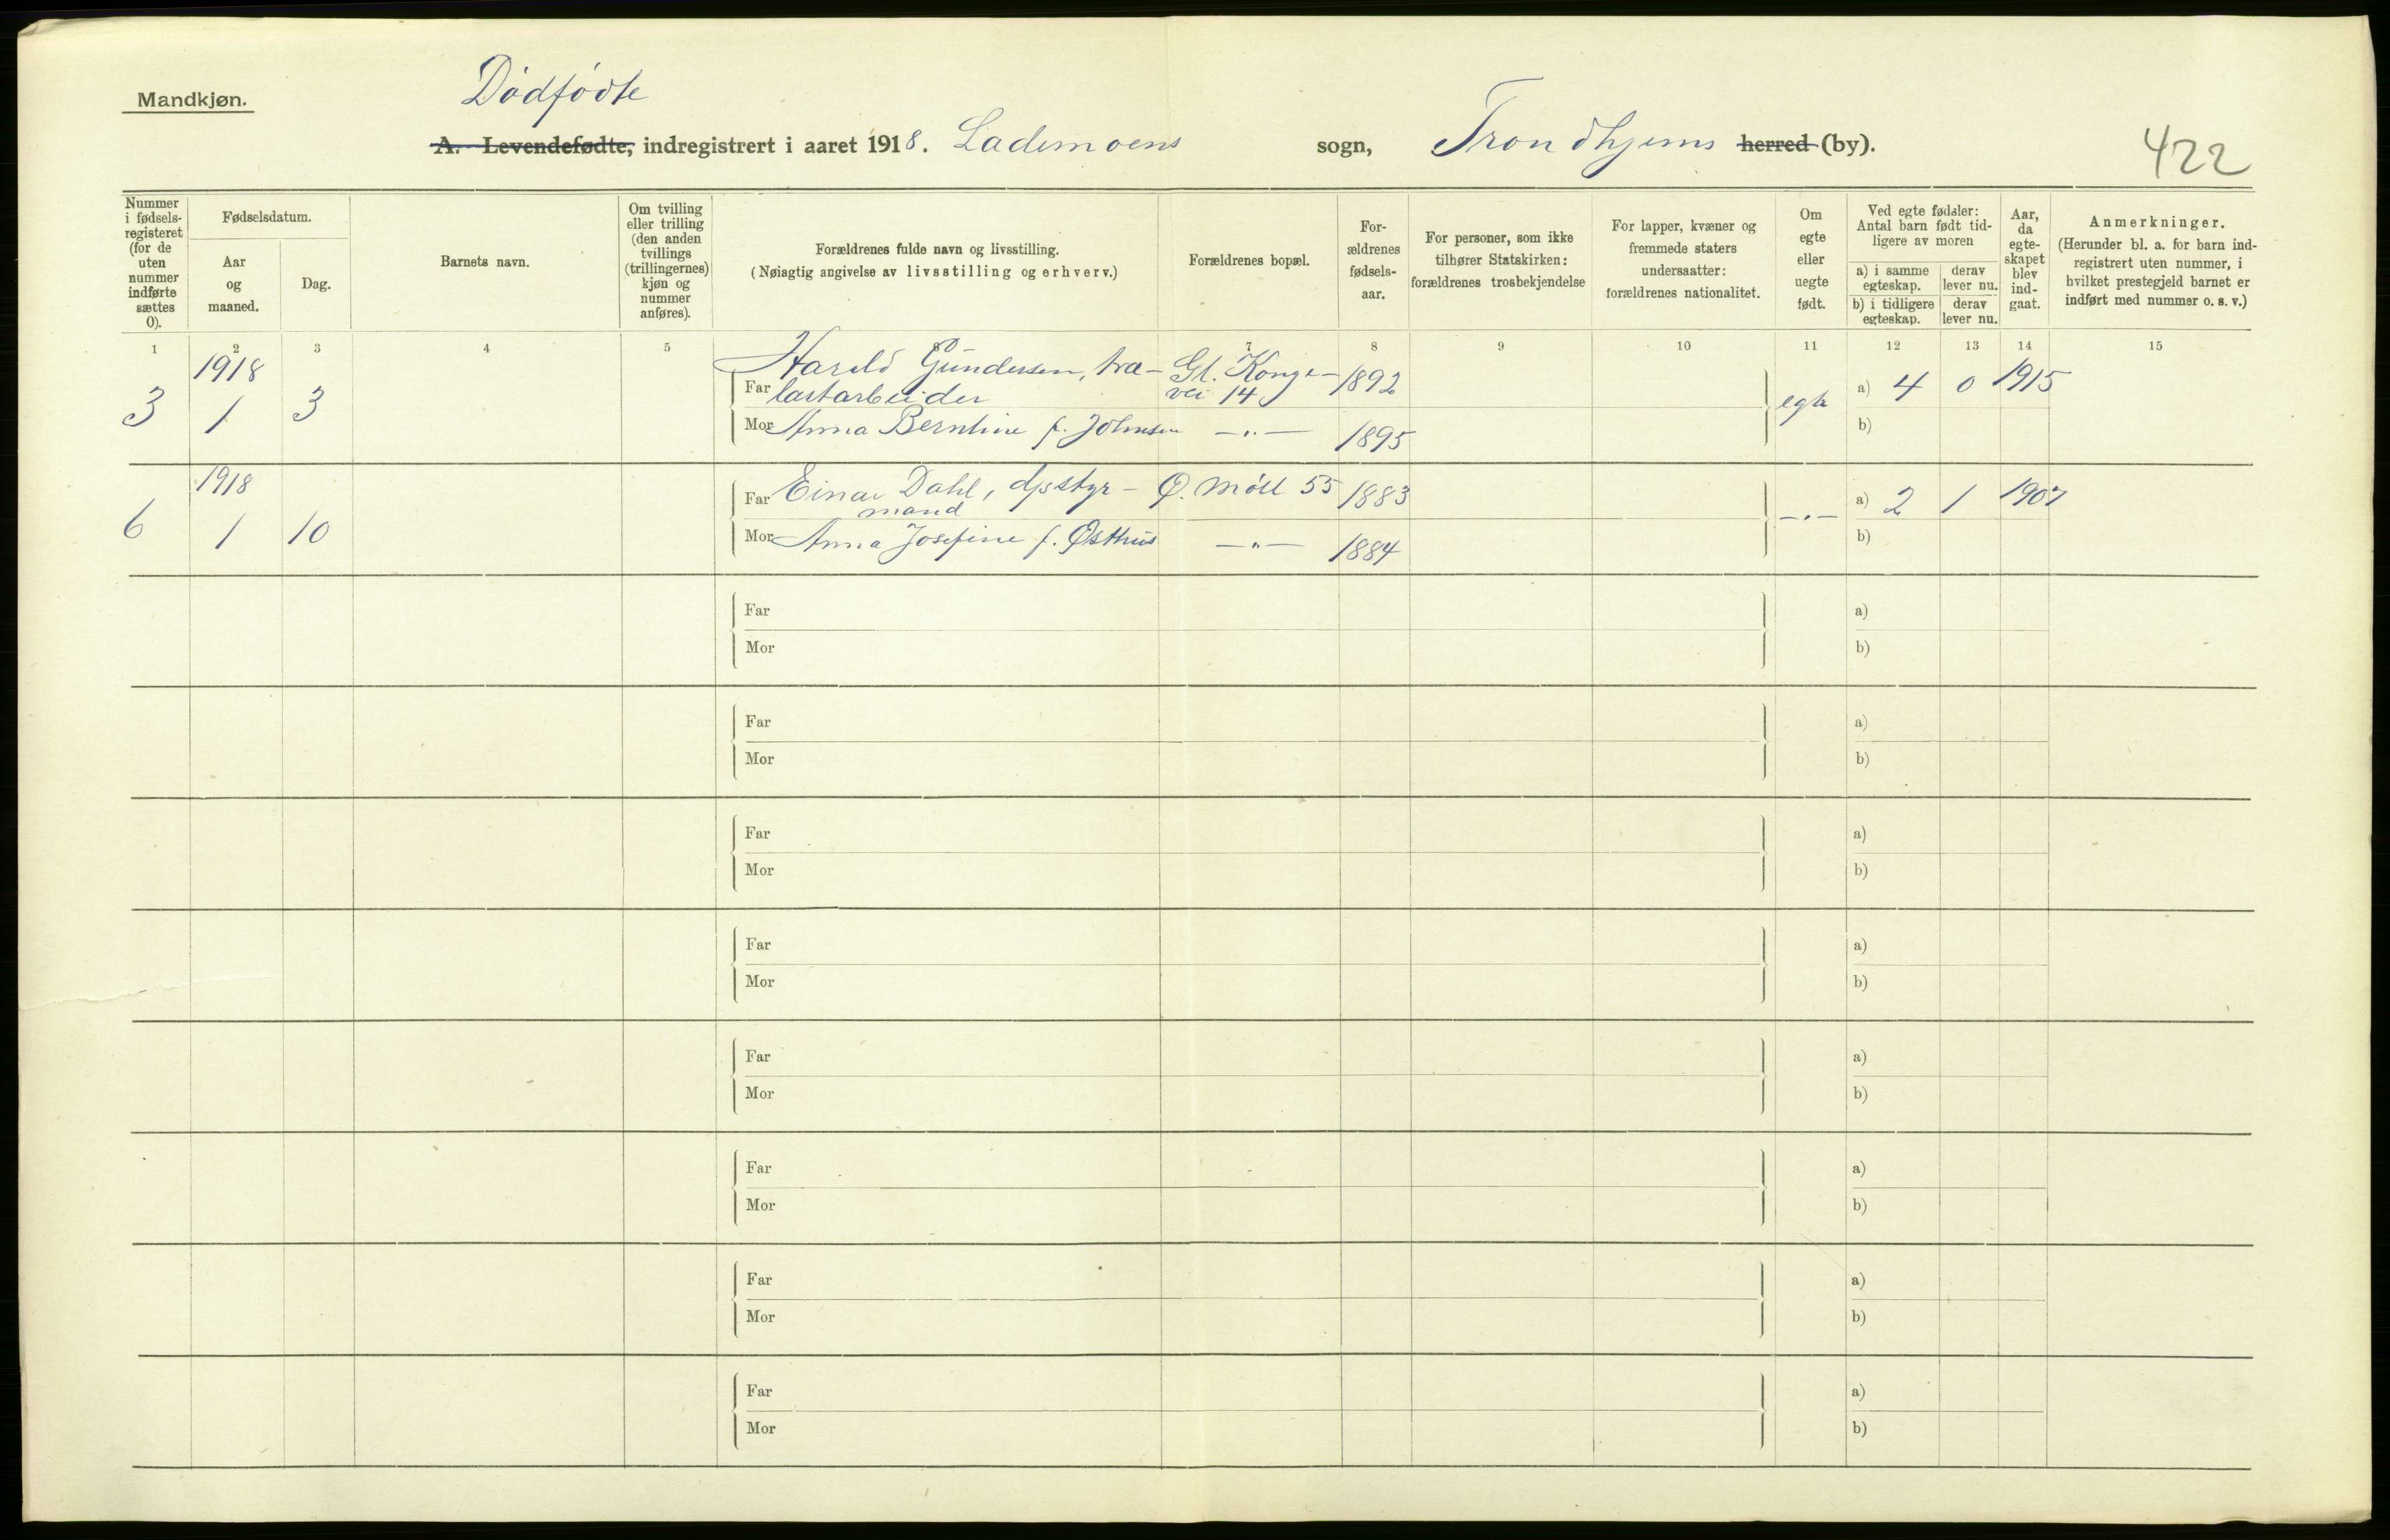 Mandkjøn.
Dødfødte
A. Levendefødte, indregistrert i aaret 1918. Lademoens sogn, Trondhjems herred (by).
422
Nummer i fødsels-registeret (for de uten nummer indførte sættes 0).
Fødselsdatum.
Aar og maaned.
Dag.
Barnets navn.
Om tvilling eller trilling (den anden tvillings (trillingernes) kjøn og nummer anføres).
Forældrenes fulde navn og livsstilling.
(Nøiagtig angivelse av livsstilling og erhverv.)
Forældrenes bopæl.
For-ældrenes fødsels-aar.
For personer, som ikke tilhører Statskirken: forældrenes trosbekjendelse
For lapper, kvæner og fremmede staters undersaatter: forældrenes nationalitet.
Om egte eller uegte født.
Ved egte fødsler: Antal barn født tid-ligere av moren
a) i samme egteskap.
derav lever nu.
b) i tidligere egteskap.
derav lever nu.
Aar, da egte-skapet blev ind-gaat.
Anmerkninger.
(Herunder bl. a. for barn ind-registrert uten nummer, i hvilket prestegjeld barnet er indført med nummer o. s. v.)
1 2 3 4 5 6 7 8 9 10 11 12 13 14 15
1918 Harald Gundersen, træ- Gl. Konge- 1892
3 1 3 Far lastarbeider vei 14 egte a) 4 0 1915
Mor Anna Berntine f. Johnsen —"— 1895 b)
1918 Far Einar Dahl, dpsstyr- Ø. Møll 55 1883 a) 2 1 1907
mand
6 1 10 Mor Anna Josefine f. Østhus —"— 1884 —"— b)
Far a)
Mor b)
Far a)
Mor b)
Far a)
Mor b)
Far a)
Mor b)
Far a)
Mor b)
Far a)
Mor b)
Far a)
Mor b)
Far a)
Mor b)